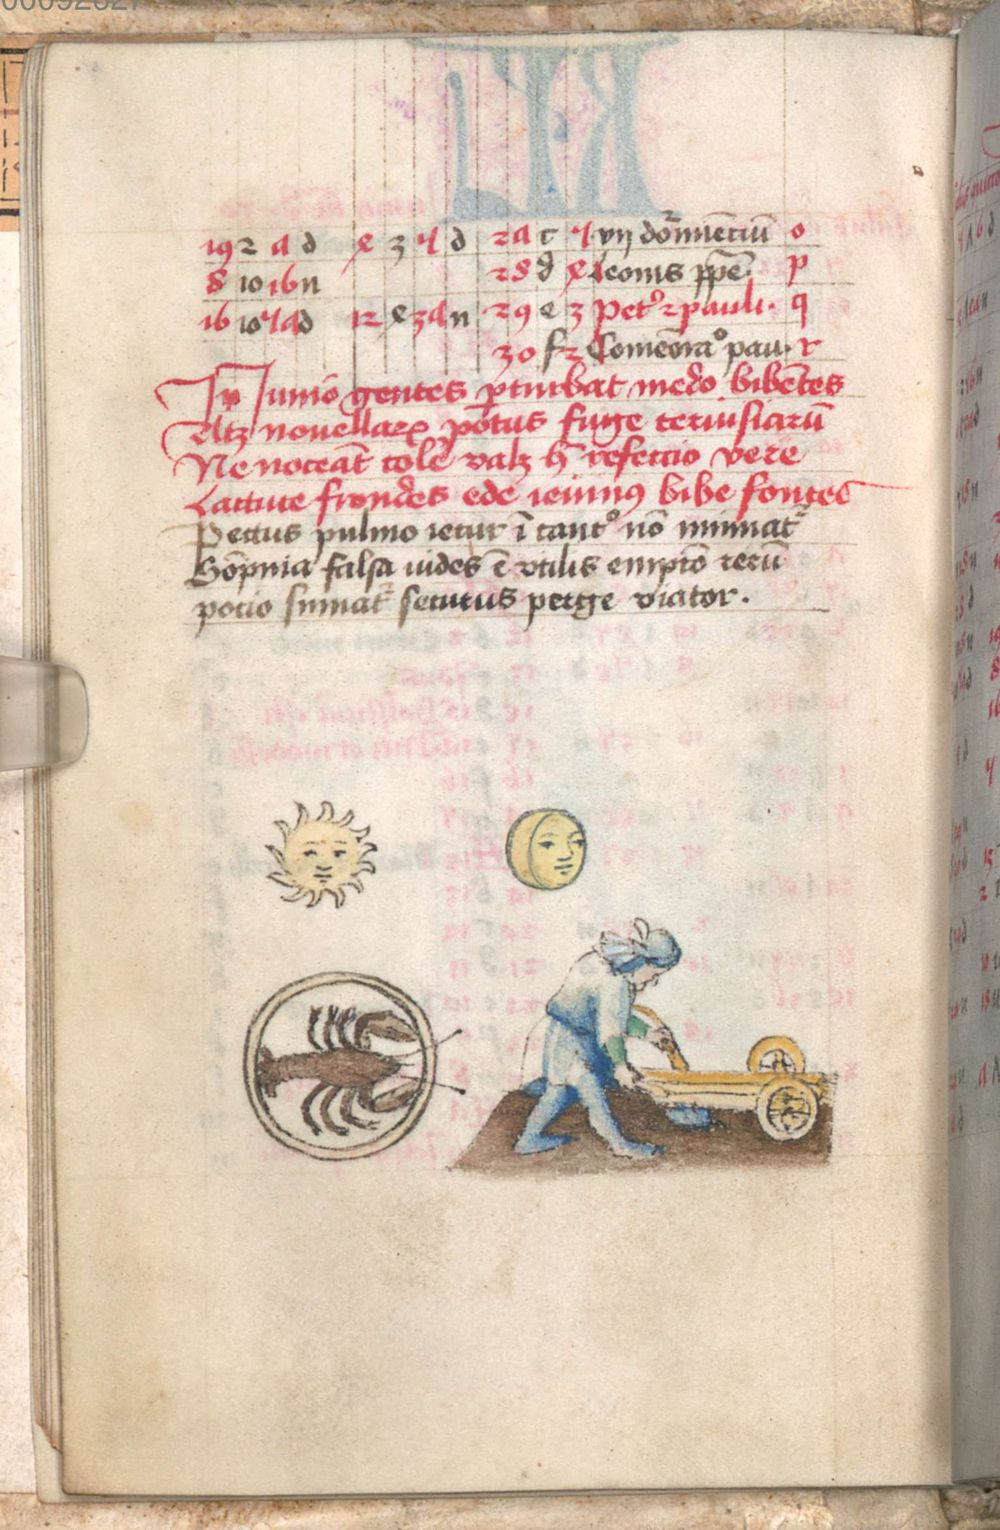 19 2 a d e 3 4 d 28 c 4 vij dormienciū o
8 10 16 n 28 d e leonis ppe p
16 10 4 a d 12 e 3 a n 29 e 3 Petʳ 2 pauli. q
30 f 2 Comeoraᵒ pau. r
In Junio gentes pturbat medo bibētes
Atz nouellarꝝ potus fuge ceruisiarū
Ne noceāt colē valz h̄ refeccio vere
Lactuce frondes ede ieiunꝯ bibe fontes
Pectus pulmo iecur ī cancᵒ nō minuat᷑
Sōpnia falsa uides ē vtilis emptō rerū
pocio sumat᷑ securus perge viator.